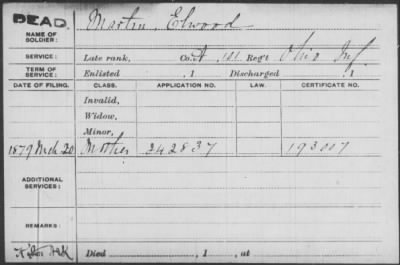 DEAD.
NAME OF SOLDIER: Martin, Elwood
SERVICE: Late rank, Co. A, 101 Reg't Ohio Inf.
TERM OF SERVICE: Enlisted , 1 Discharged , 1
DATE OF FILING. CLASS. APPLICATION NO. LAW. CERTIFICATE NO.
Invalid,
Widow,
Minor,
1879 Mch 20 Mother 242837 193007
ADDITIONAL SERVICES:
REMARKS:
Died , 1 , at